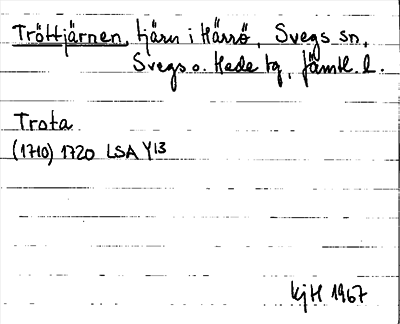 Tröttjärnen, tjärn i Härrö, Svegs sn,
Svegs o. Hede tg, Jämtl. l.
Trota
(1710) 1720 LSA Y13
KjH 1967